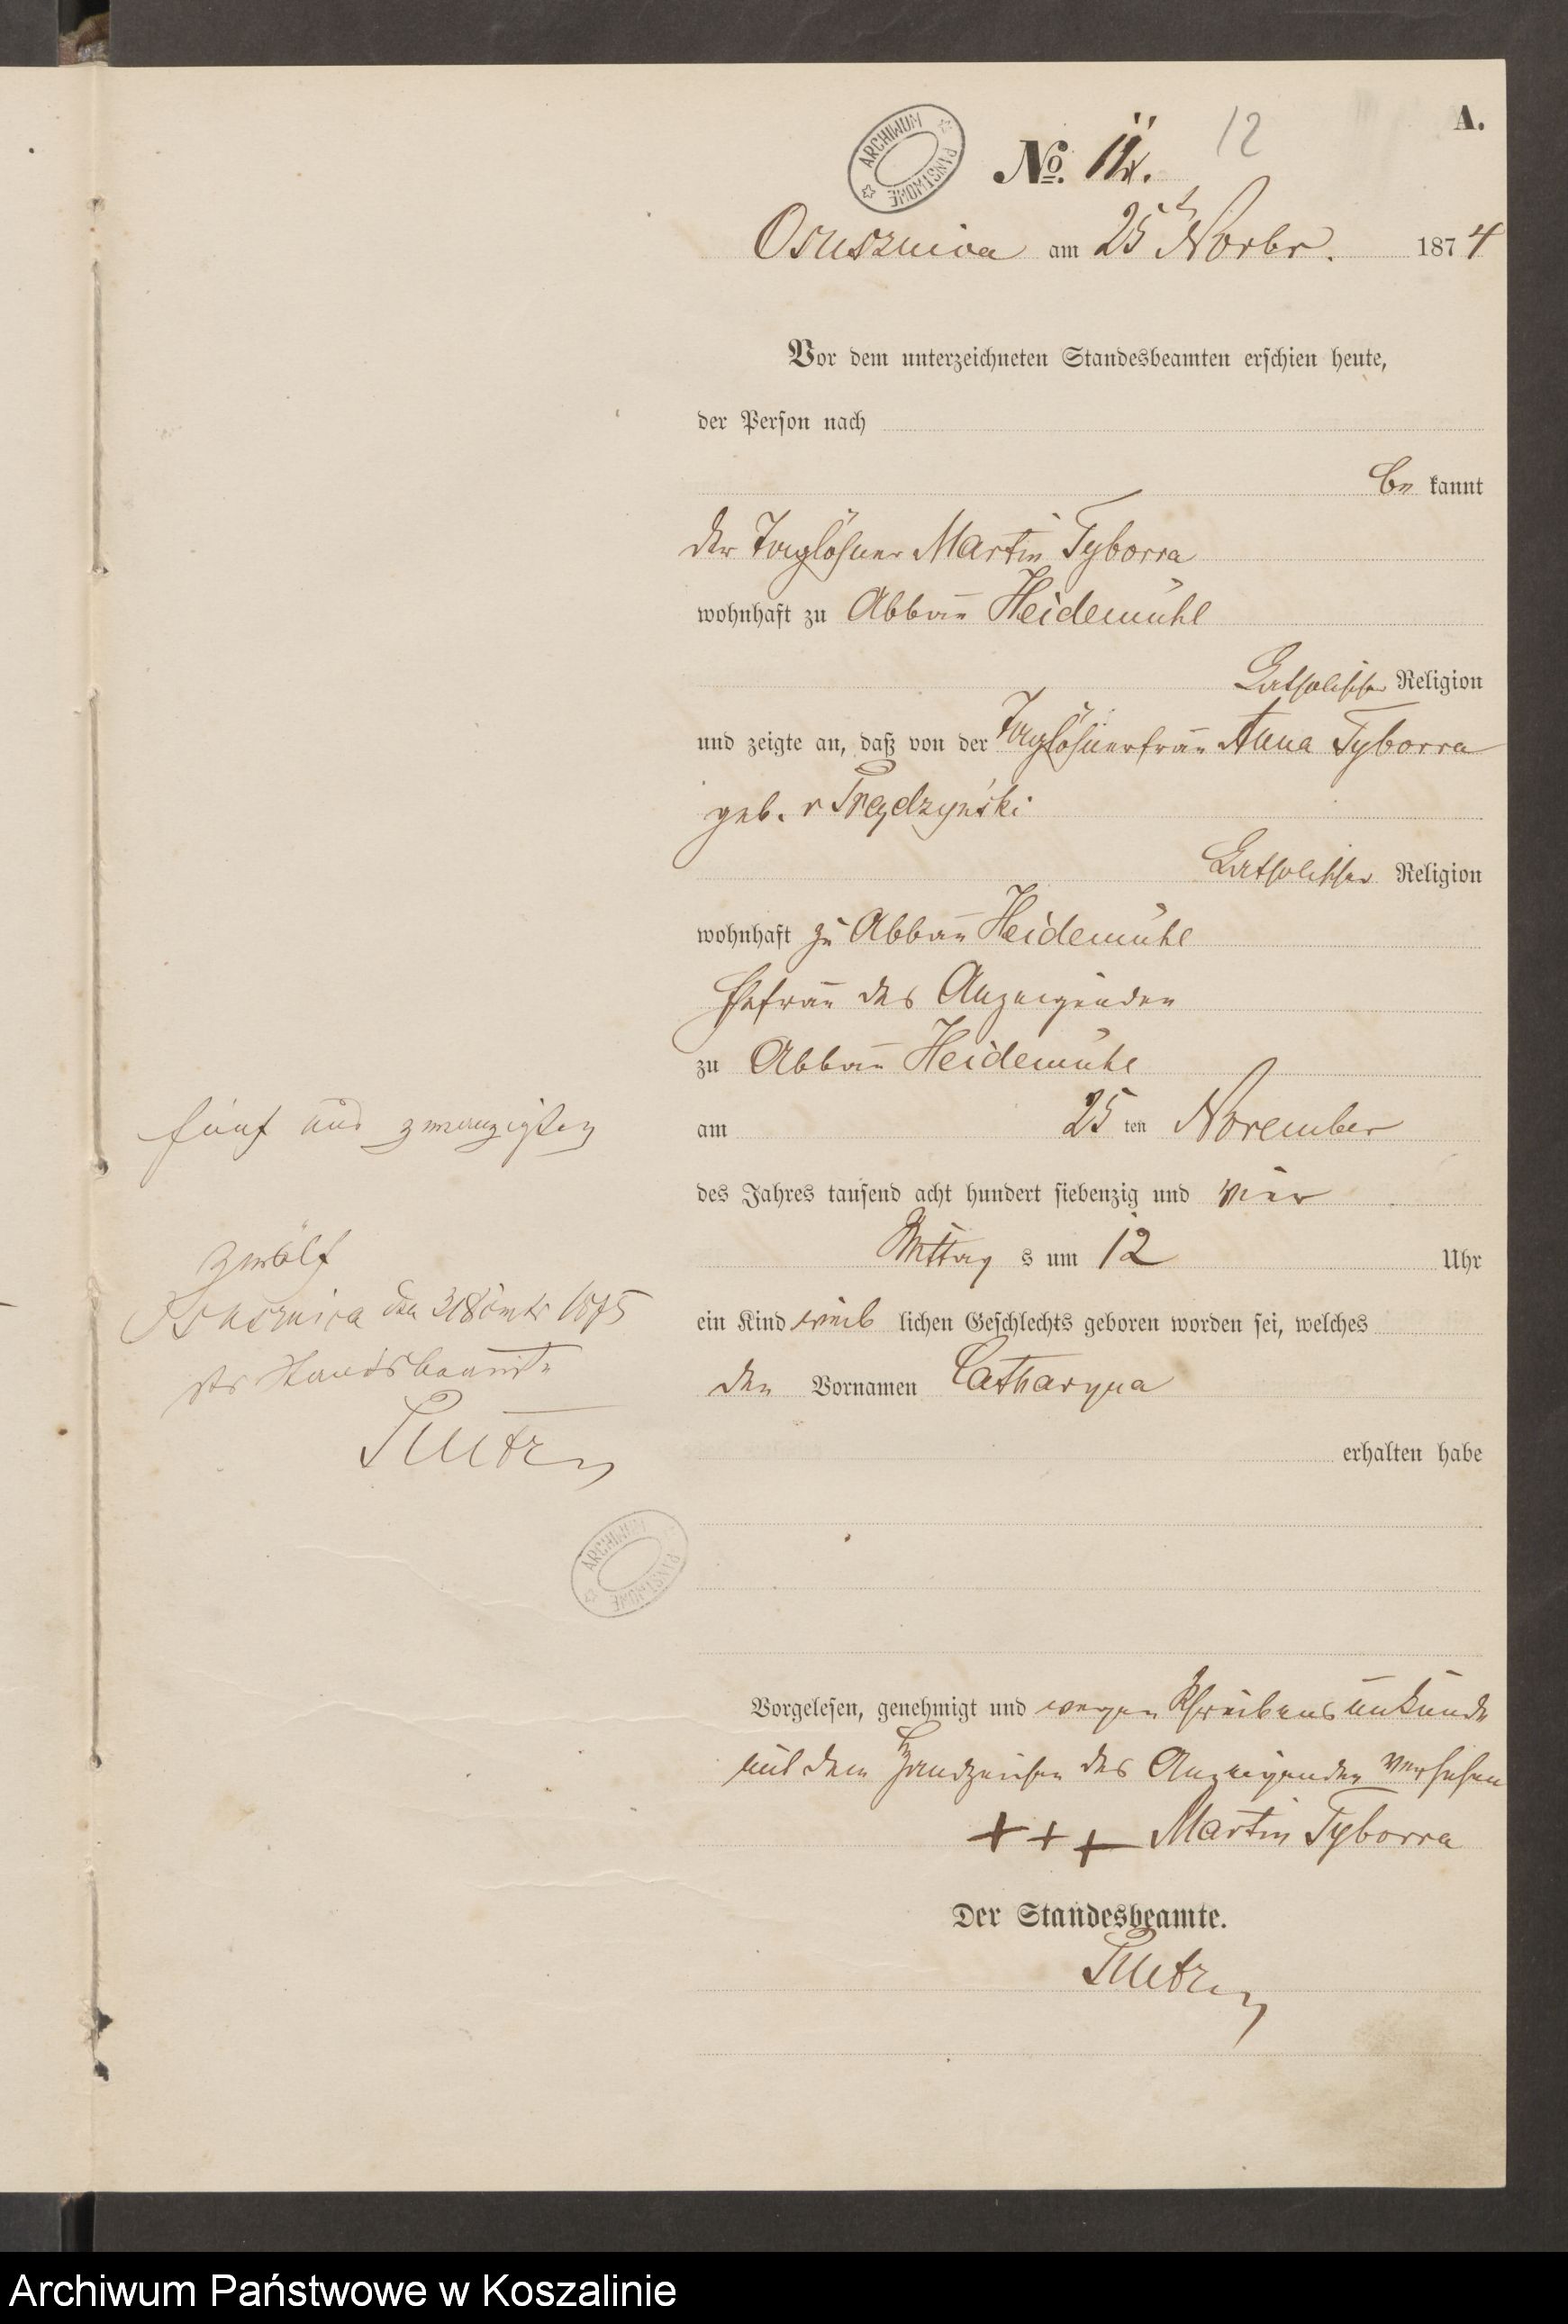 A.
ARCHIWUM PAŃSTWOWE
No. 11.
12
Osusznica am 25t Novbr. 1874
Vor dem unterzeichneten Standesbeamten erschien heute,
der Person nach
be kannt
der Taglöhner Martin Tyborra
wohnhaft zu Abbau Heidemühl
Catholischer Religion
und zeigte an, daß von der Taglöhnerfrau Anna Tyborra
geb. v Prądzyński
Catholischer Religion
wohnhaft zu Abbau Heidemühl
Ehefrau des Anzeigenden
zu Abbau Heidemühl
am 25 ten November
des Jahres tausend acht hundert siebenzig und vier
Mittag s um 12 Uhr
ein Kind weib lichen Geschlechts geboren worden sei, welches
den Vornamen Catharyna
erhalten habe
Vorgelesen, genehmigt und wegen Schreibensunkunde
mit dem Handzeichen des Anzeigenden versehen
+ + + Martin Tyborra
Der Standesbeamte.
fünf und zwanzigsten
zwölf
Osusznica den 1875
der Standesbeamte
ARCHIWUM PAŃSTWOWE
Archiwum Państwowe w Koszalinie